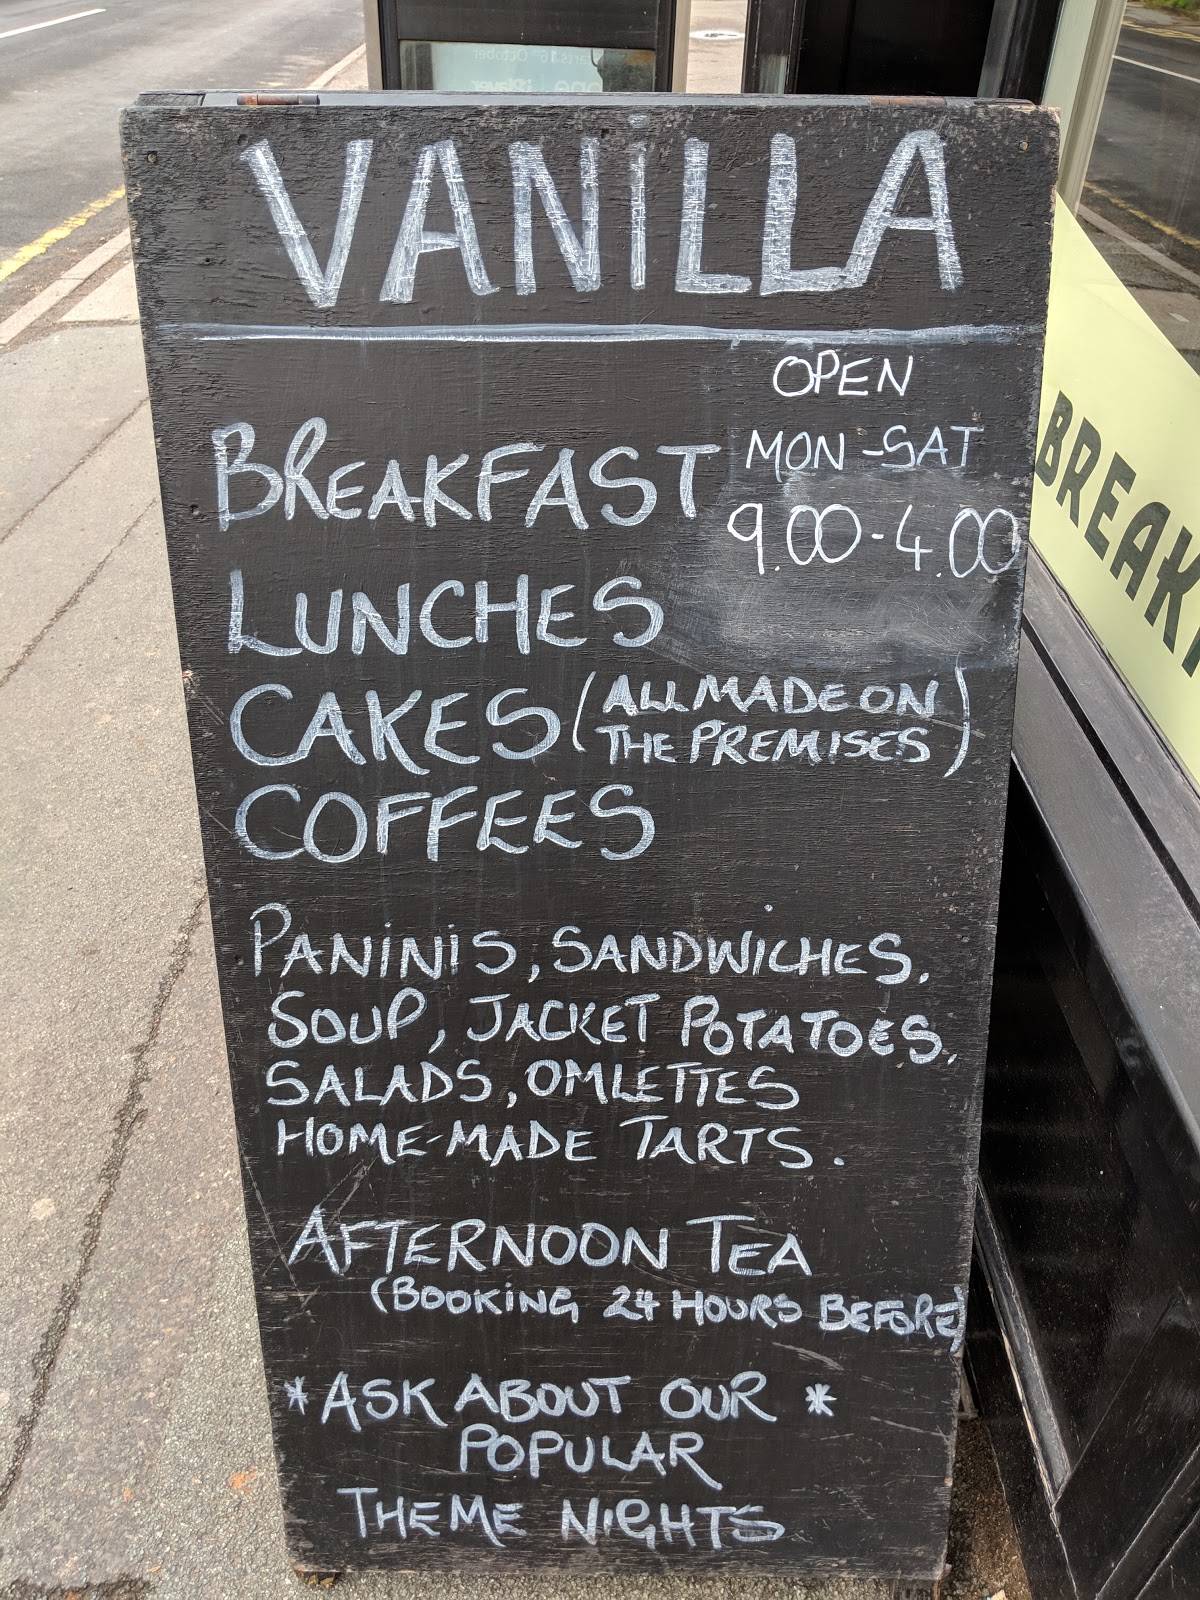 VANILLA
OPEN
MON-SAT
9.00-4.00
BREAKFAST
LUNCHES
CAKES (ALL MADE ON
THE PREMISES)
COFFEES
PANINIS, SANDWICHES,
SOUP, JACKET POTATOES,
SALADS, OMLETTES
HOME-MADE TARTS.
AFTERNOON TEA
(BOOKING 24 HOURS BEFORE)
*ASK ABOUT OUR *
POPULAR
THEME NIGHTS
BREAK